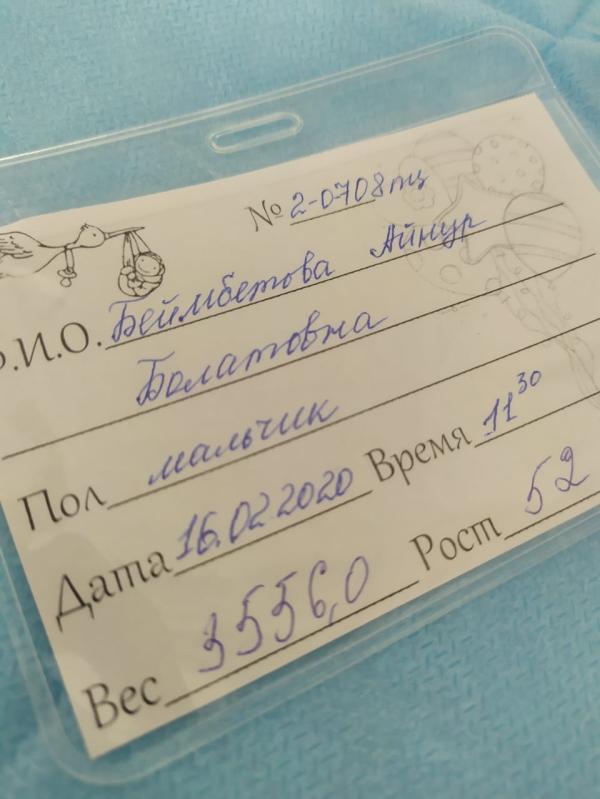 № 2-0708пц
Ф.И.О. Беймбетова Айнур
Болатовна
Пол мальчик
Дата 16.02.2020 Время 11 30
Вес 3556,0 Рост 52